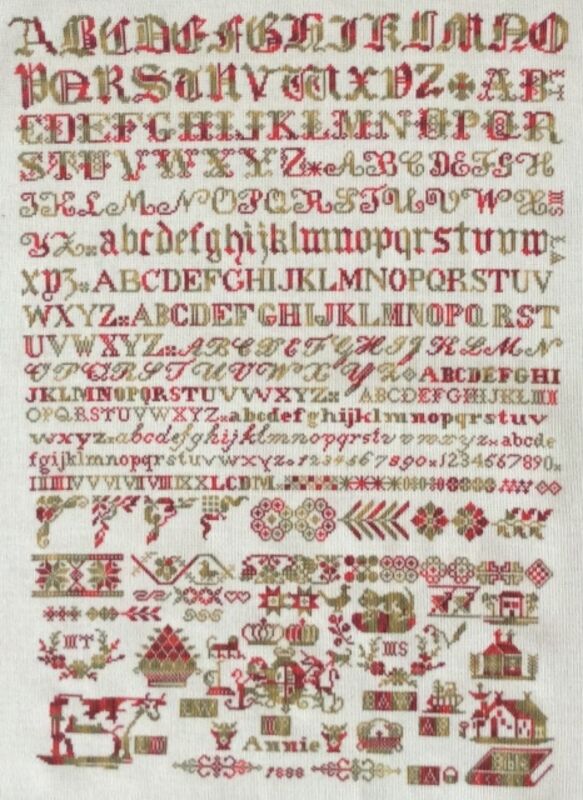 ABCDEFGHIJKLMNO
PQRSTUVWXYZ AB
CDEFGHIJKLMNOPQR
STUVWXYZ ABCDEFGH
IJKLMNOPQRSTUVWX MS
YZ abcdefghijklmnopqrstuvw LA
xyz ABCDEFGHIJKLMNOPQRSTUV
WXYZ ABCDEFGHIJKLMNOPQRST
UVWXYZ ABCDEFGHIJKLMN
OPQRSTUVWXYZ ABCDEFGHI
JKLMNOPQRSTUVWXYZ ABCDEFGHIJKLM
OPQRSTUVWXYZ abcdefghijklmnopqrstuv
wxyz abcdefghijklmnopqrstuvwxyz abcde
fgijklmnopqrstuvwxyz 1234567890 1234567890
MT MS
AW
EA
Annie
1888
Bible